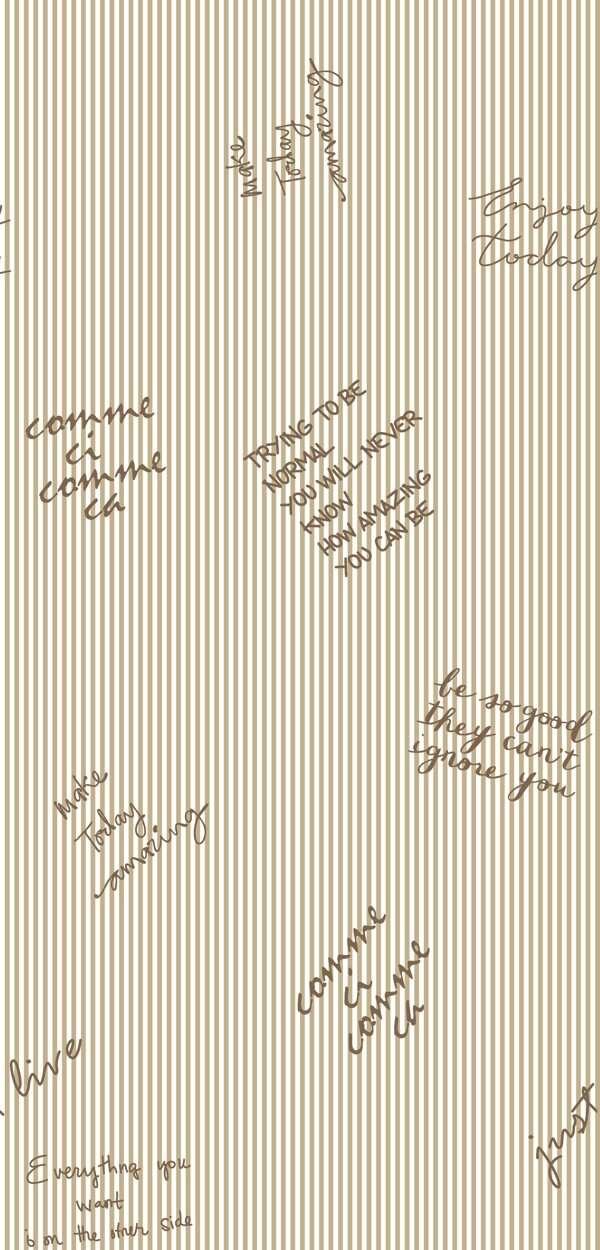 Make
Today
amazing
Enjoy
today
comme
ci
comme
ca
TRYING TO BE
NORMAL
YOU WILL NEVER
KNOW
HOW AMAZING
YOU CAN BE
be so good
they can't
ignore you
Make
Today
amazing
comme
ci
comme
ca
live
just
Everythng you
want
is on the other side